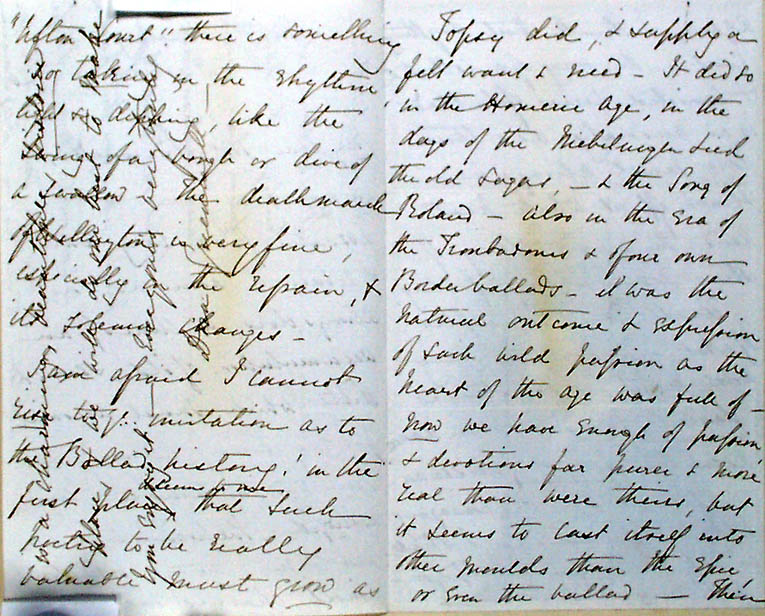 "Ufton Court" there is something
so taking in the rhythm
light & dipping, like the
swing of a bough or dive of
a swallow - The death march
of Wellington is very fine,
especially in the refrain, &
its solemn changes -
I am afraid I cannot
rise to yr. invitation as to
the "Ballad history"! in the
first place, it seems to me that such
Poetry to be really
valuable must grow as
Topsy did, & supply a
felt want & need - It did so
in the Homeric Age, in the
days of the Niebelungen Lied
the old Sagas, - & the Song of
Roland - also in the Era of
the Troubadours & of our own
Border ballads - it was the
natural outcome & expression
of such wild passion as the
heart of the age was full of -
Now we have enough of passion
& devotions far purer & more
real than were theirs, but
it seems to cast itself into
other moulds than the Epic
or even the ballad - Then
is a charming